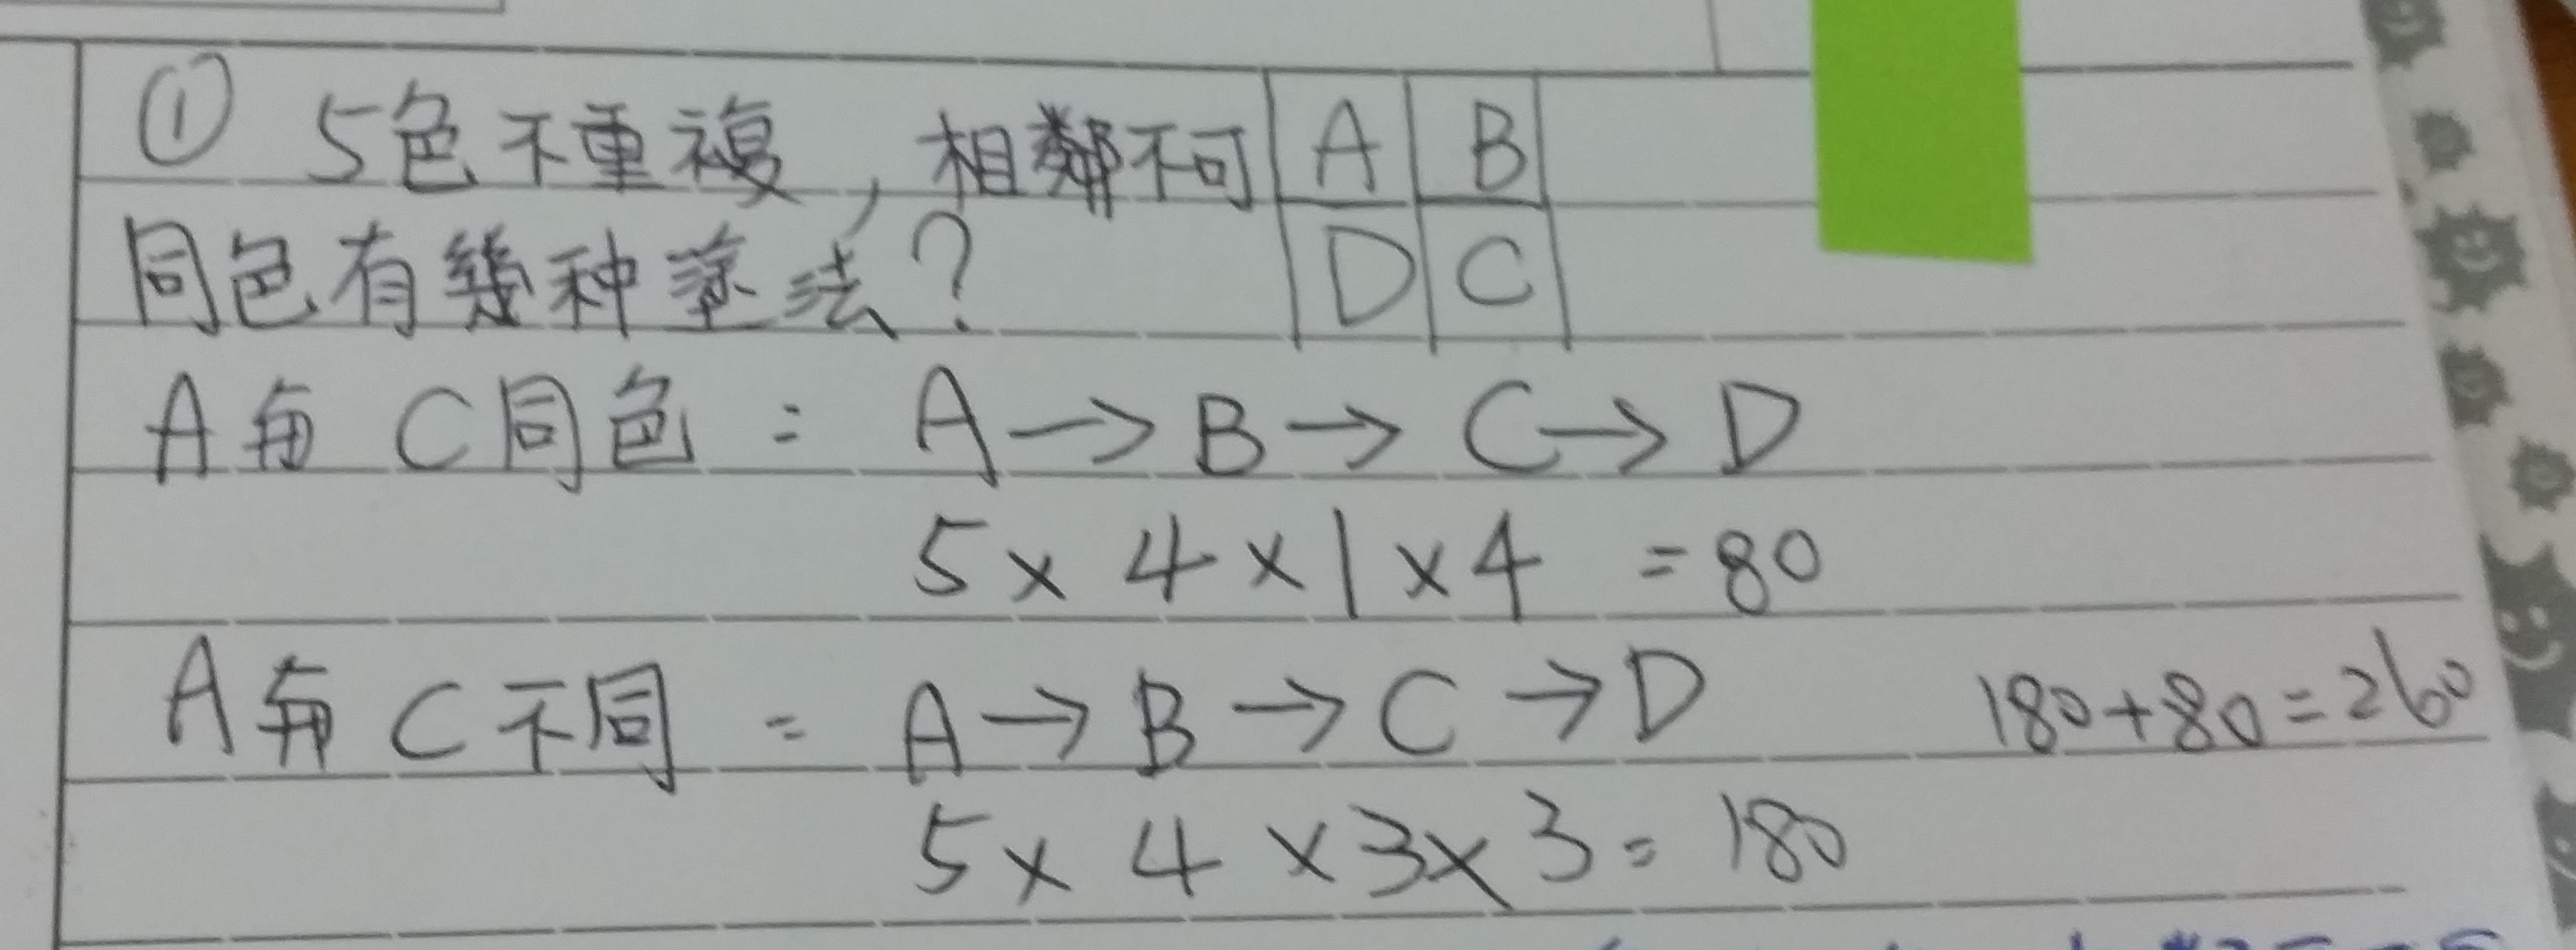 ① 5色不重複，相鄰不可 A B
同色有幾种塗法？ D C
A与 C同色 = A→B→C→D
5×4×1×4 =80
A与 C不同 = A→B→C→D 180+80=260
5×4×3×3=180